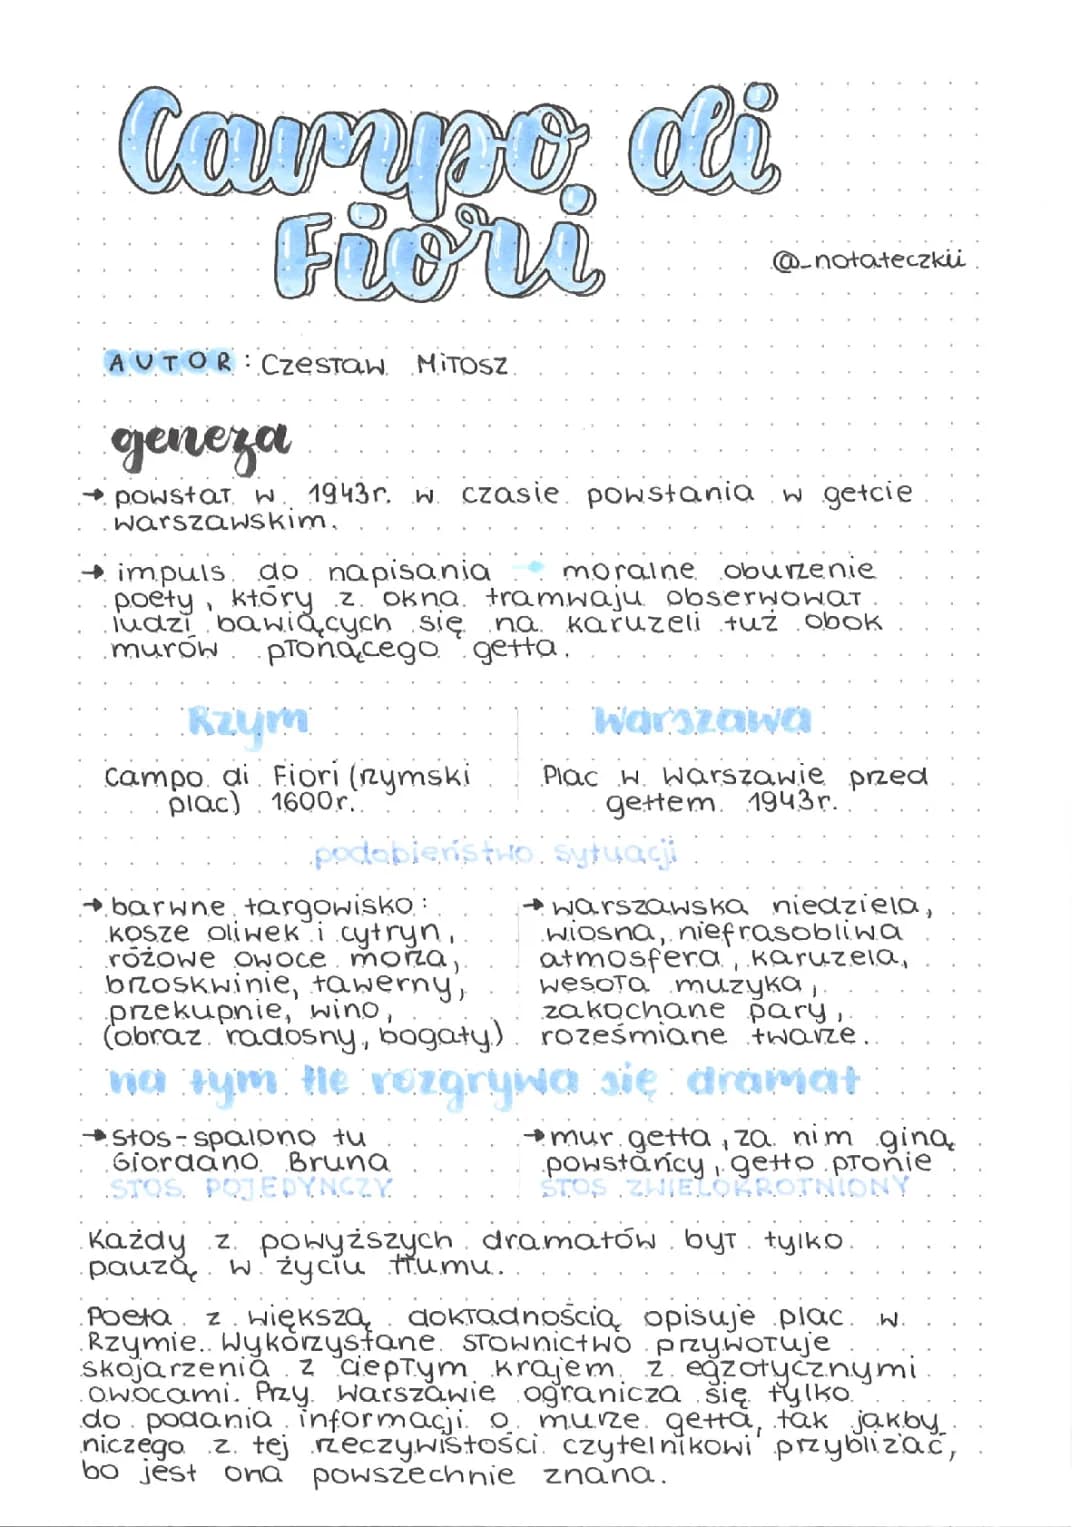 Campo di
Fiori
@_notateczkii
AUTOR: Czesław Miłosz
geneza
→ powstał w 1943r. w czasie powstania w getcie
warszawskim.
→ impuls do napisania → moralne oburzenie
poety, który z okna tramwaju obserwował
ludzi bawiących się na karuzeli tuż obok
murów płonącego getta.
Rzym Warszawa
Campo di Fiori (rzymski Plac w Warszawie przed
plac) 1600r. gettem 1943r.
podobieństwo sytuacji
→ barwne targowisko: → warszawska niedziela,
kosze oliwek i cytryn, wiosna, niefrasobliwa
różowe owoce morza, atmosfera, karuzela,
brzoskwinie, tawerny, wesoła muzyka,
przekupnie, wino, zakochane pary,
(obraz radosny, bogaty) roześmiane twarze.
na tym tle rozgrywa się dramat
→ stos - spalono tu → mur getta, za nim giną
Giordano Bruna powstańcy, getto płonie
STOS POJEDYNCZY STOS ZWIELOKROTNIONY
Każdy z powyższych dramatów był tylko
pauzą w życiu tłumu.
Poeta z większą dokładnością opisuje plac w
Rzymie. Wykorzystane słownictwo przywołuje
skojarzenia z ciepłym krajem z egzotycznymi
owocami. Przy Warszawie ogranicza się tylko
do podania informacji o murze getta, tak jakby
niczego z tej rzeczywistości czytelnikowi przybliżać,
bo jest ona powszechnie znana.